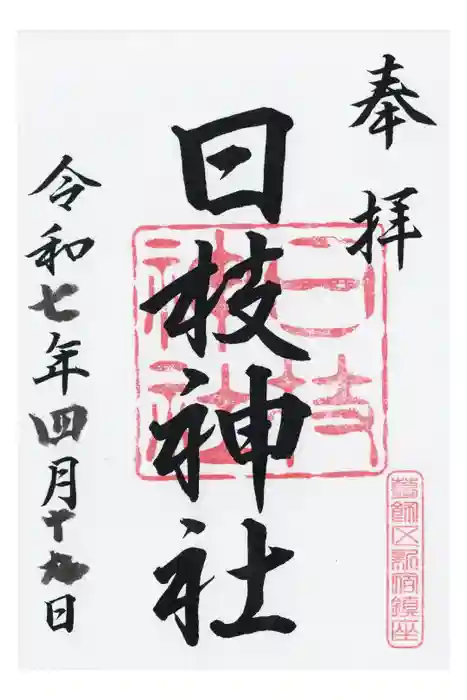 奉拝
葛飾区新宿鎮座
日枝神社
日枝
神社
令和七年四月十九日